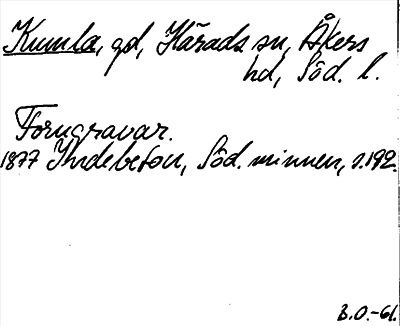 Kumla, gd, Härads sn, Åkers
hd, Söd. l.
Forngravar.
1877 Indebetou, Söd. minnen, s.192.
B.O.-61.